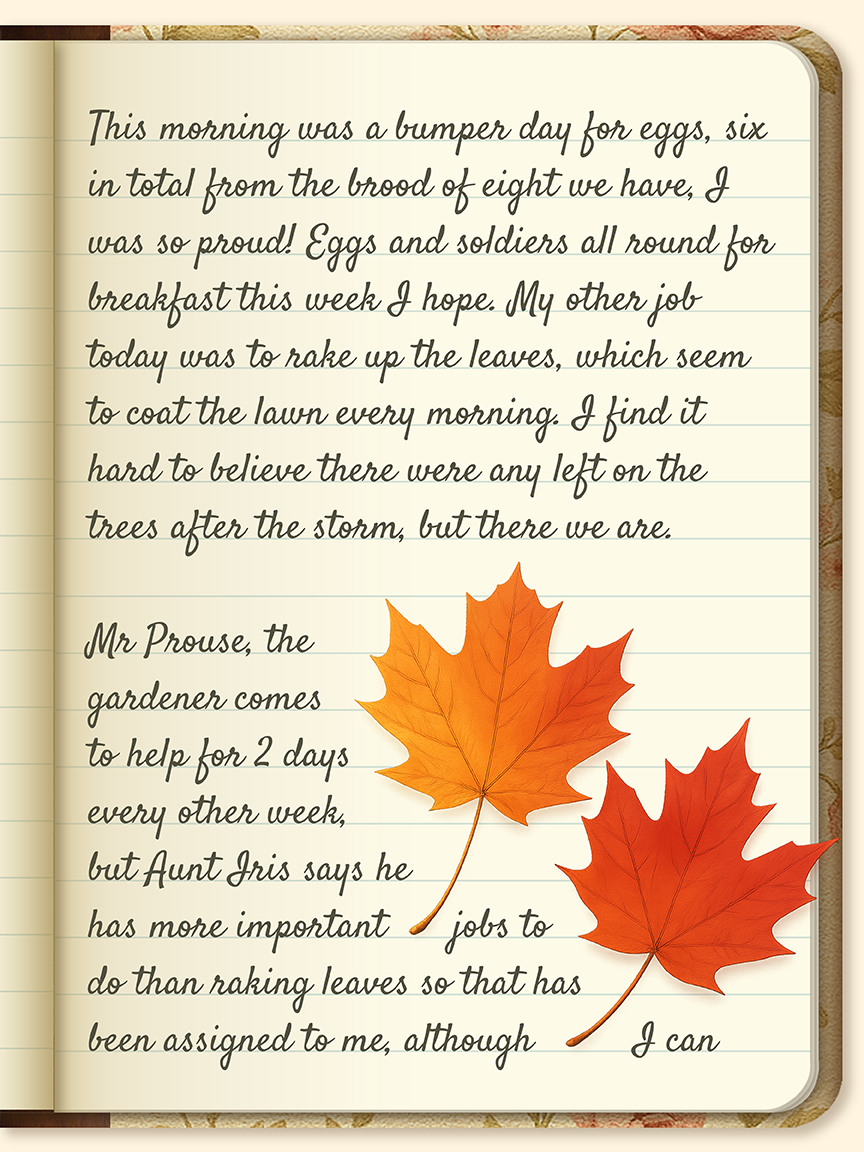 This morning was a bumper day for eggs, six
in total from the brood of eight we have, I
was so proud! Eggs and soldiers all round for
breakfast this week I hope. My other job
today was to rake up the leaves, which seem
to coat the lawn every morning. I find it
hard to believe there were any left on the
trees after the storm, but there we are.
Mr Prouse, the
gardener comes
to help for 2 days
every other week,
but Aunt Iris says he
has more important jobs to
do than raking leaves so that has
been assigned to me, although I can